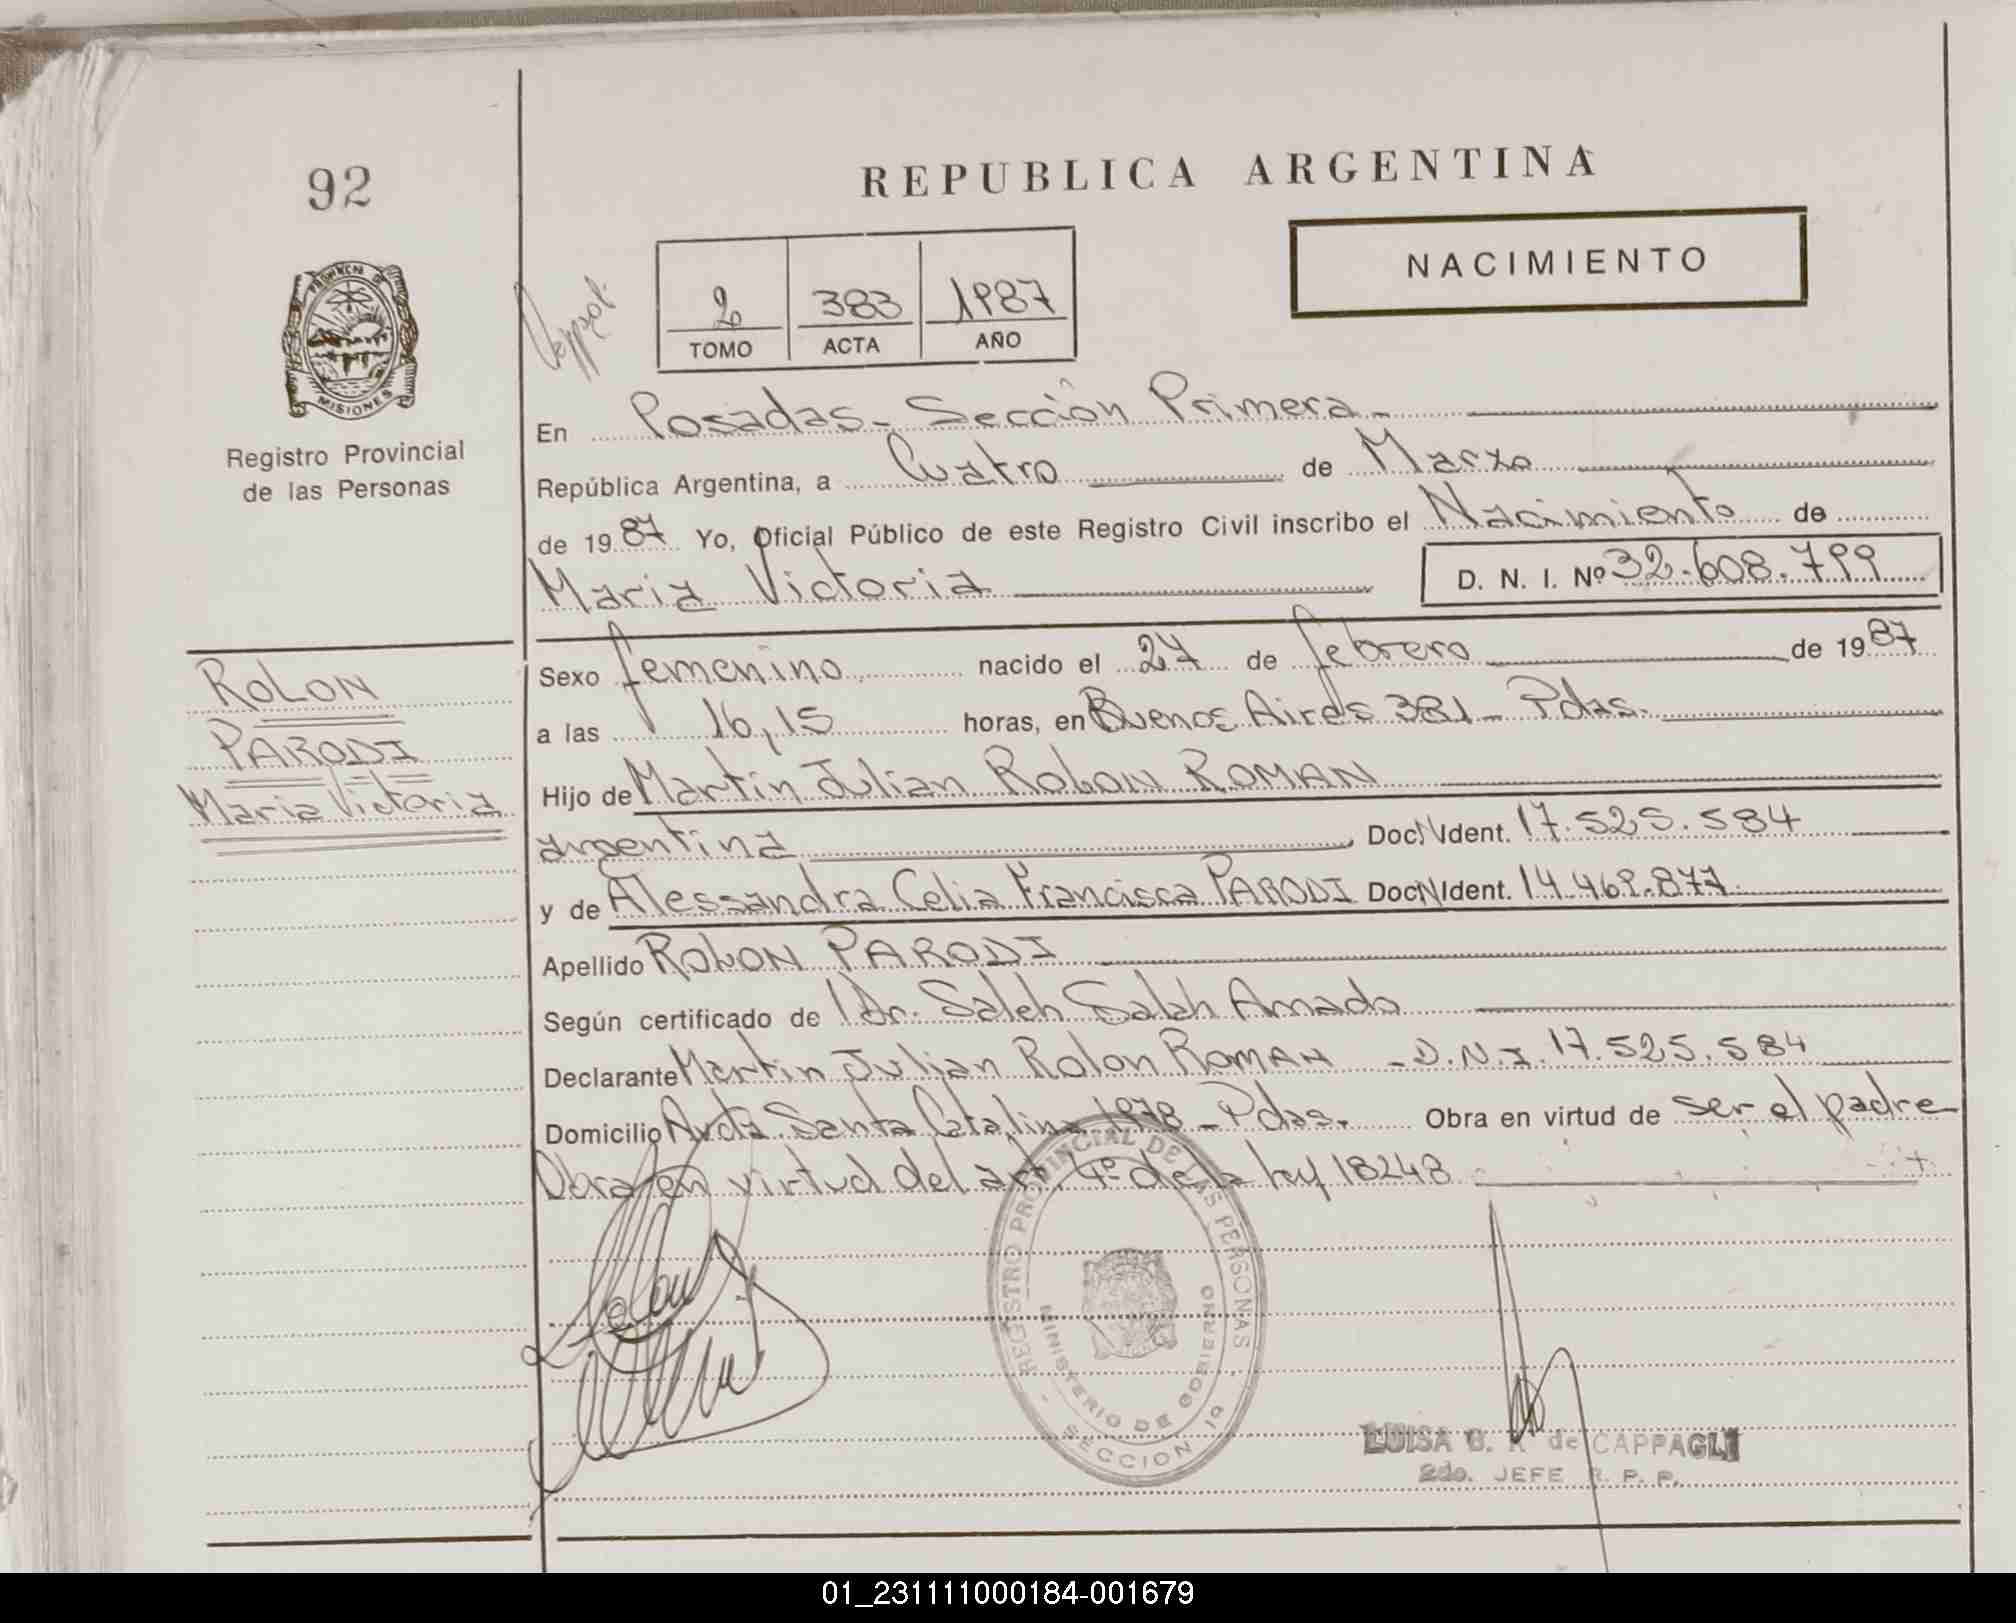 92
REPUBLICA ARGENTINA
NACIMIENTO
2 383 1987
TOMO ACTA AÑO
PROVINCIA DE
MISIONES
Registro Provincial
de las Personas
En Posadas - Sección Primera -
República Argentina, a Cuatro de Marzo
de 1987 Yo, Oficial Público de este Registro Civil inscribo el Nacimiento de
Maria Victoria D. N. I. Nº 32.608.799
ROLON
PARODI
Maria Victoria
Sexo femenino nacido el 27 de febrero de 1987
a las 16,15 horas, en Buenos Aires 381 - Pdas.
Hijo de Martin Julian ROLON ROMAN
argentina Doc. Ident. 17.525.584
y de Alessandra Celia Francisca PARODI Doc. Ident. 14.469.877
Apellido ROLON PARODI
Según certificado de Dr. Saleh Salah Amado
Declarante Martin Julian Rolon ROMAN - D.N.I. 17.525.584
Domicilio Avda. Santa Catalina 1978 - Pdas. Obra en virtud de ser el padre
Obra en virtud del art. 4º de la ley 18248
REGISTRO PROVINCIAL DE LAS PERSONAS
MINISTERIO DE GOBIERNO
SECCION 1a
LUISA de CAPPAGLI
2do. JEFE R. P. P.
01_231111000184-001679